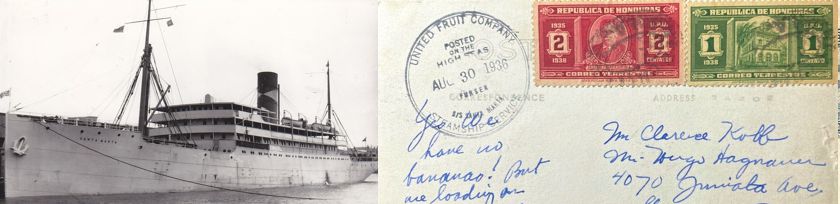 SANTA MARTA
UNITED FRUIT COMPANY
POSTED
ON THE
HIGH SEAS
AUG 30 1936
PURSER
S/S SANTA MARTA
STEAMSHIP SERVICE
REPUBLICA DE HONDURAS
1935 U.P.U.
2 2
1938 CENTAVOS
CORREO TERRESTRE
REPUBLICA DE HONDURAS
1935 U.P.U.
1 1
1938 CENTAVO
CORREO TERRESTRE
CORRESPONDENCE
ADDRESS
Yes, We
have no
bananas! But
are loading on
Mr Clarence Kobb
Mr. Hugo Hagnauer
4070 Juniata Ave.